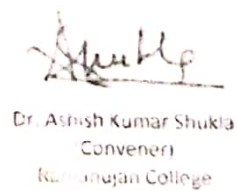 Shukla
Dr. Ashish Kumar Shukla
(Convener)
Ramanujan College